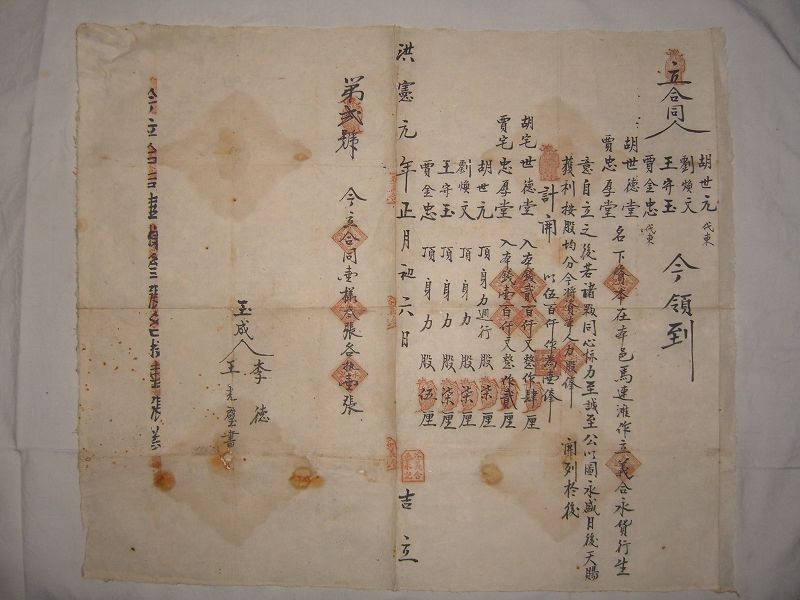 立合同人
胡世元代東
劉煥文
王守玉
賈金忠代東
今領到
胡世德堂
賈忠厚堂
名下資本在本邑馬連灘作立義合永貨行生
意自立之後若諸夥同心协力至誠至公以圖永盛日後天賜
獲利按股均分今將資本人力股俸 開列於後
計開 以伍百仟作為壹俸
胡宅世德堂 入本錢貳百仟文整作肆厘
賈宅忠厚堂 入本錢壹百仟文整作貳厘
胡世元 頂身力週行股柒厘
劉煥文 頂身力股柒厘
王守玉 頂身力股柒厘
賈金忠 頂身力股伍厘
洪憲元年正月初六日 吉立
第貳號 今立合同壹樣叁張各执壹張
玉成人 李德
王光璧書